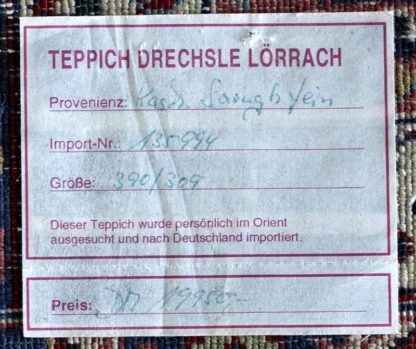 TEPPICH DRECHSLE LÖRRACH
Provenienz: fein
Import-Nr.: 135994
Größe: 390/309
Dieser Teppich wurde persönlich im Orient
ausgesucht und nach Deutschland importiert.
Preis: DM